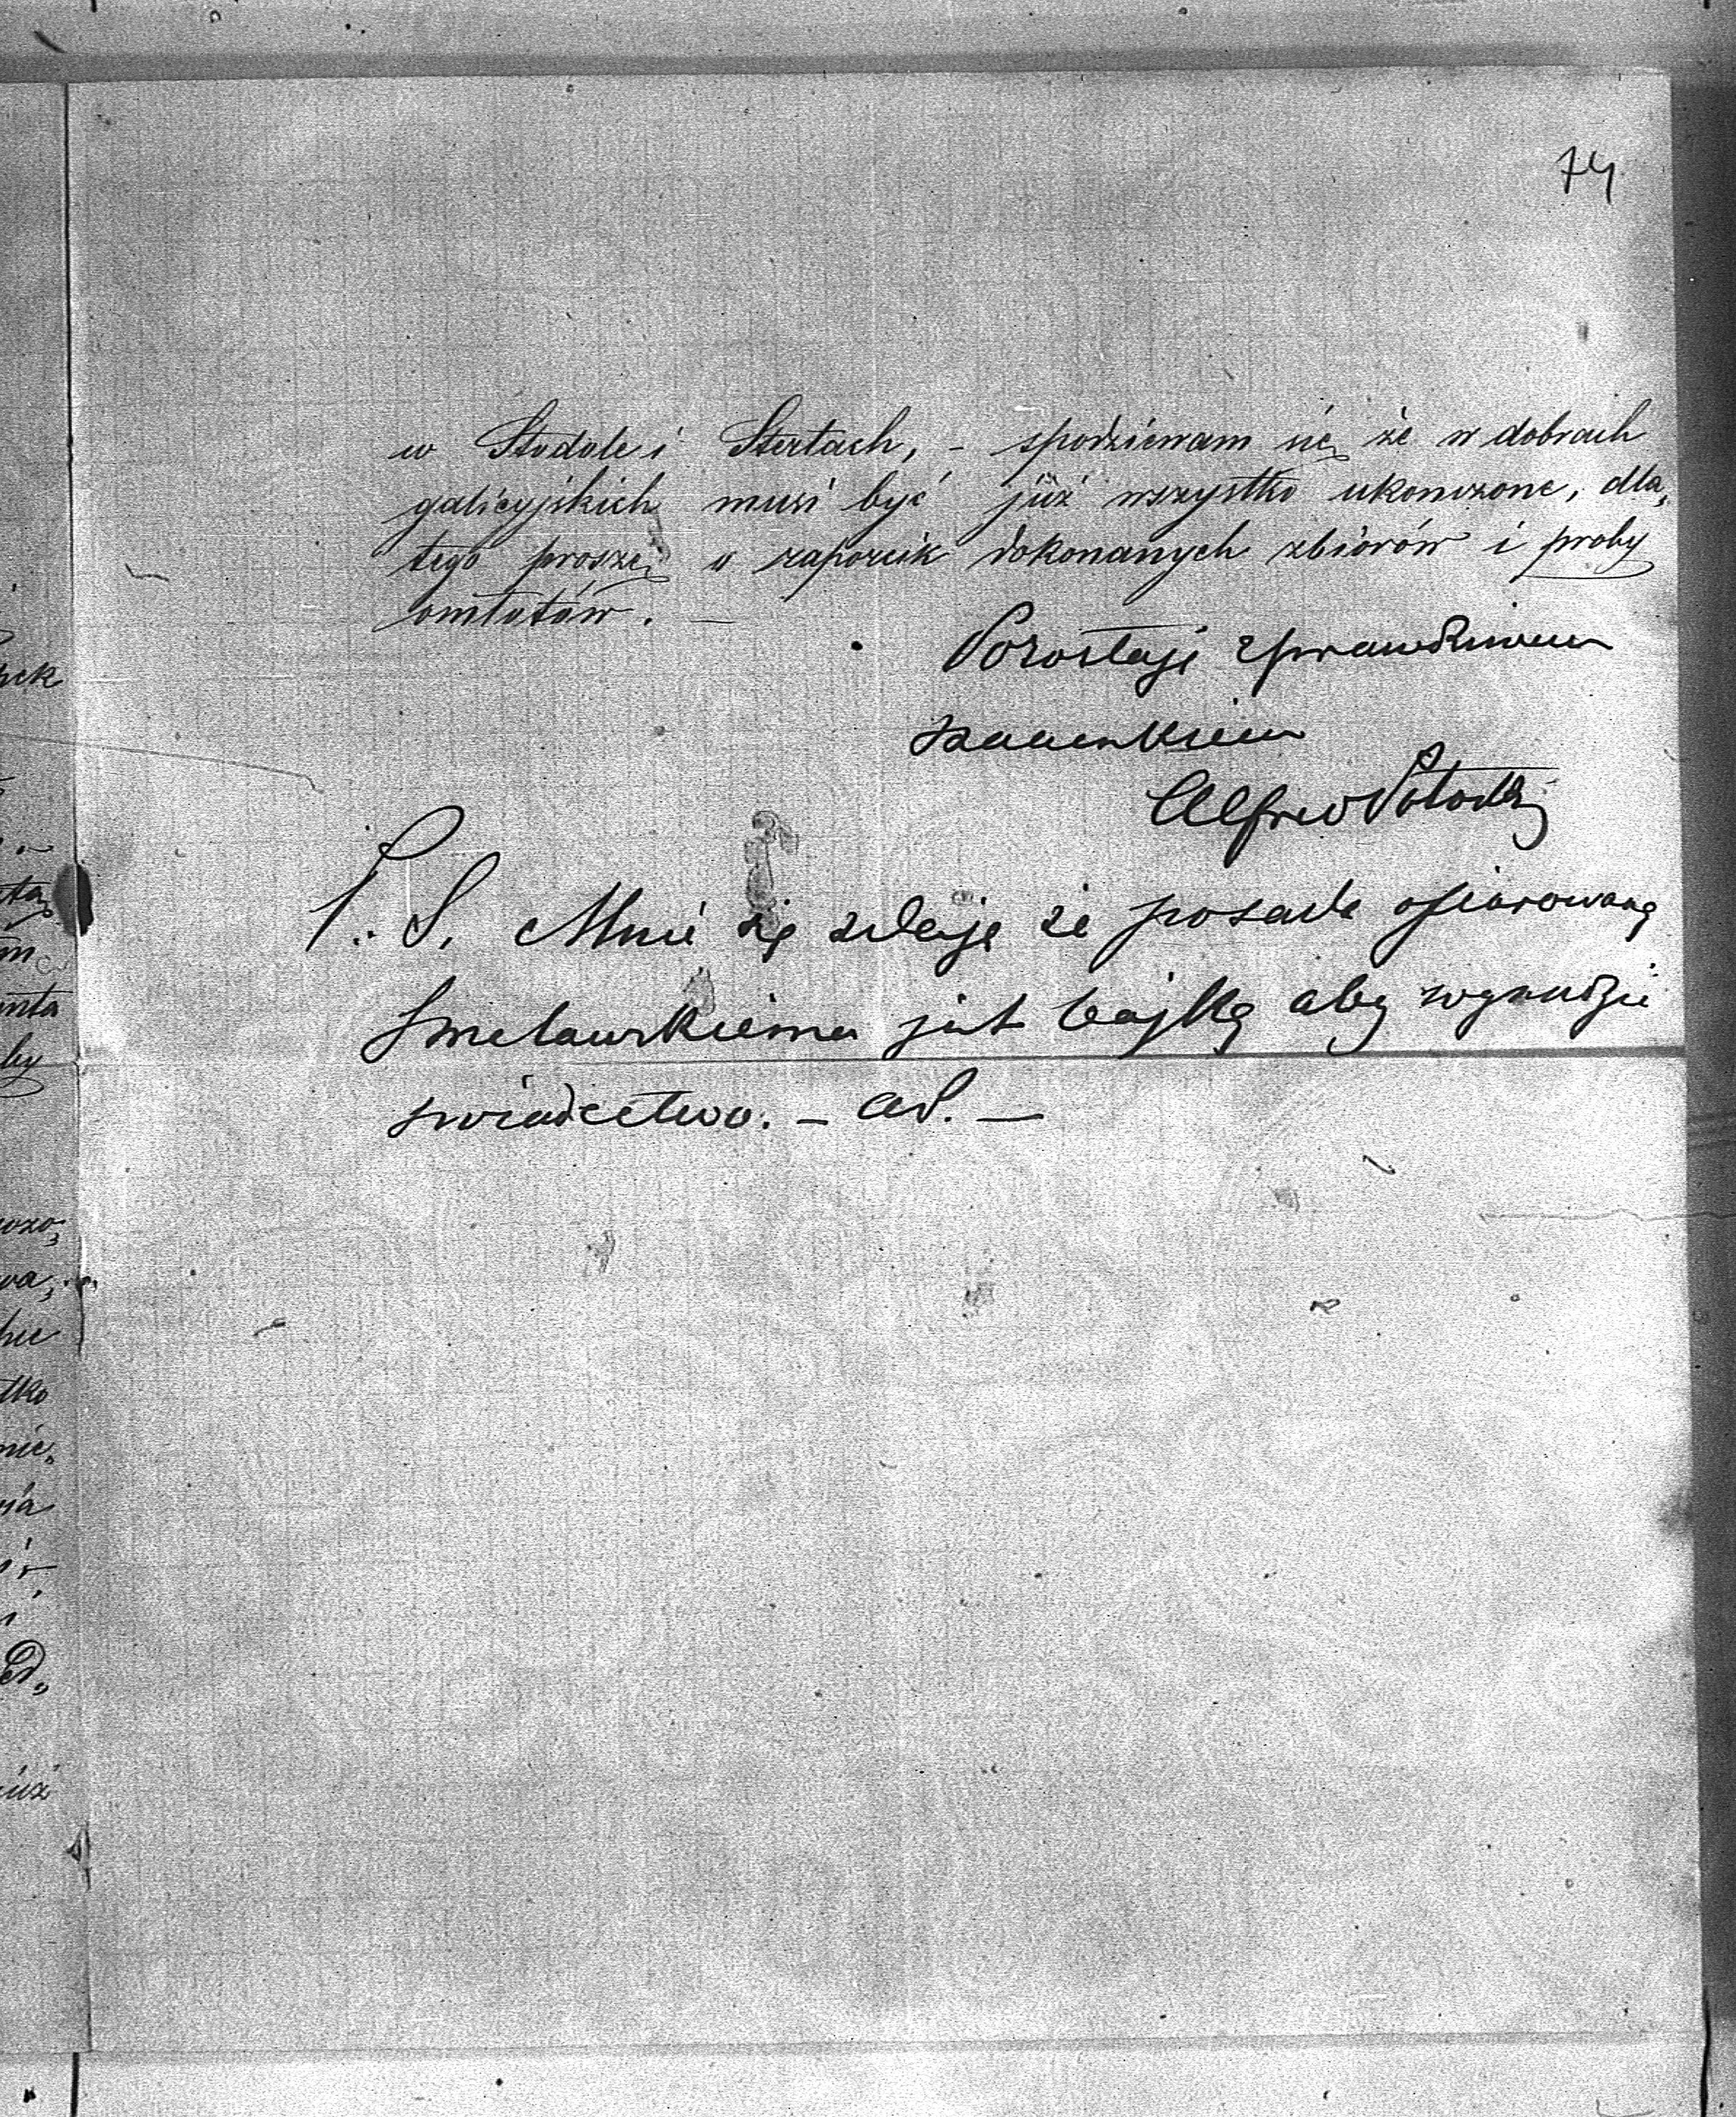 74
w Stodole i Stertach, – spodziewam się że w dobrach
galicyjskich musi być już wszystko ukończone, dla„
tego proszę o raporcik dokonanych zbiorów i proby
omłotów. –
Pozostaję z prawdziwem
szacunkiem
Alfred Potocki
P. S. Mnie się zdaje że posada ofiarowaną
jest bajką aby wyłudzić
świadectwo. – AP. –